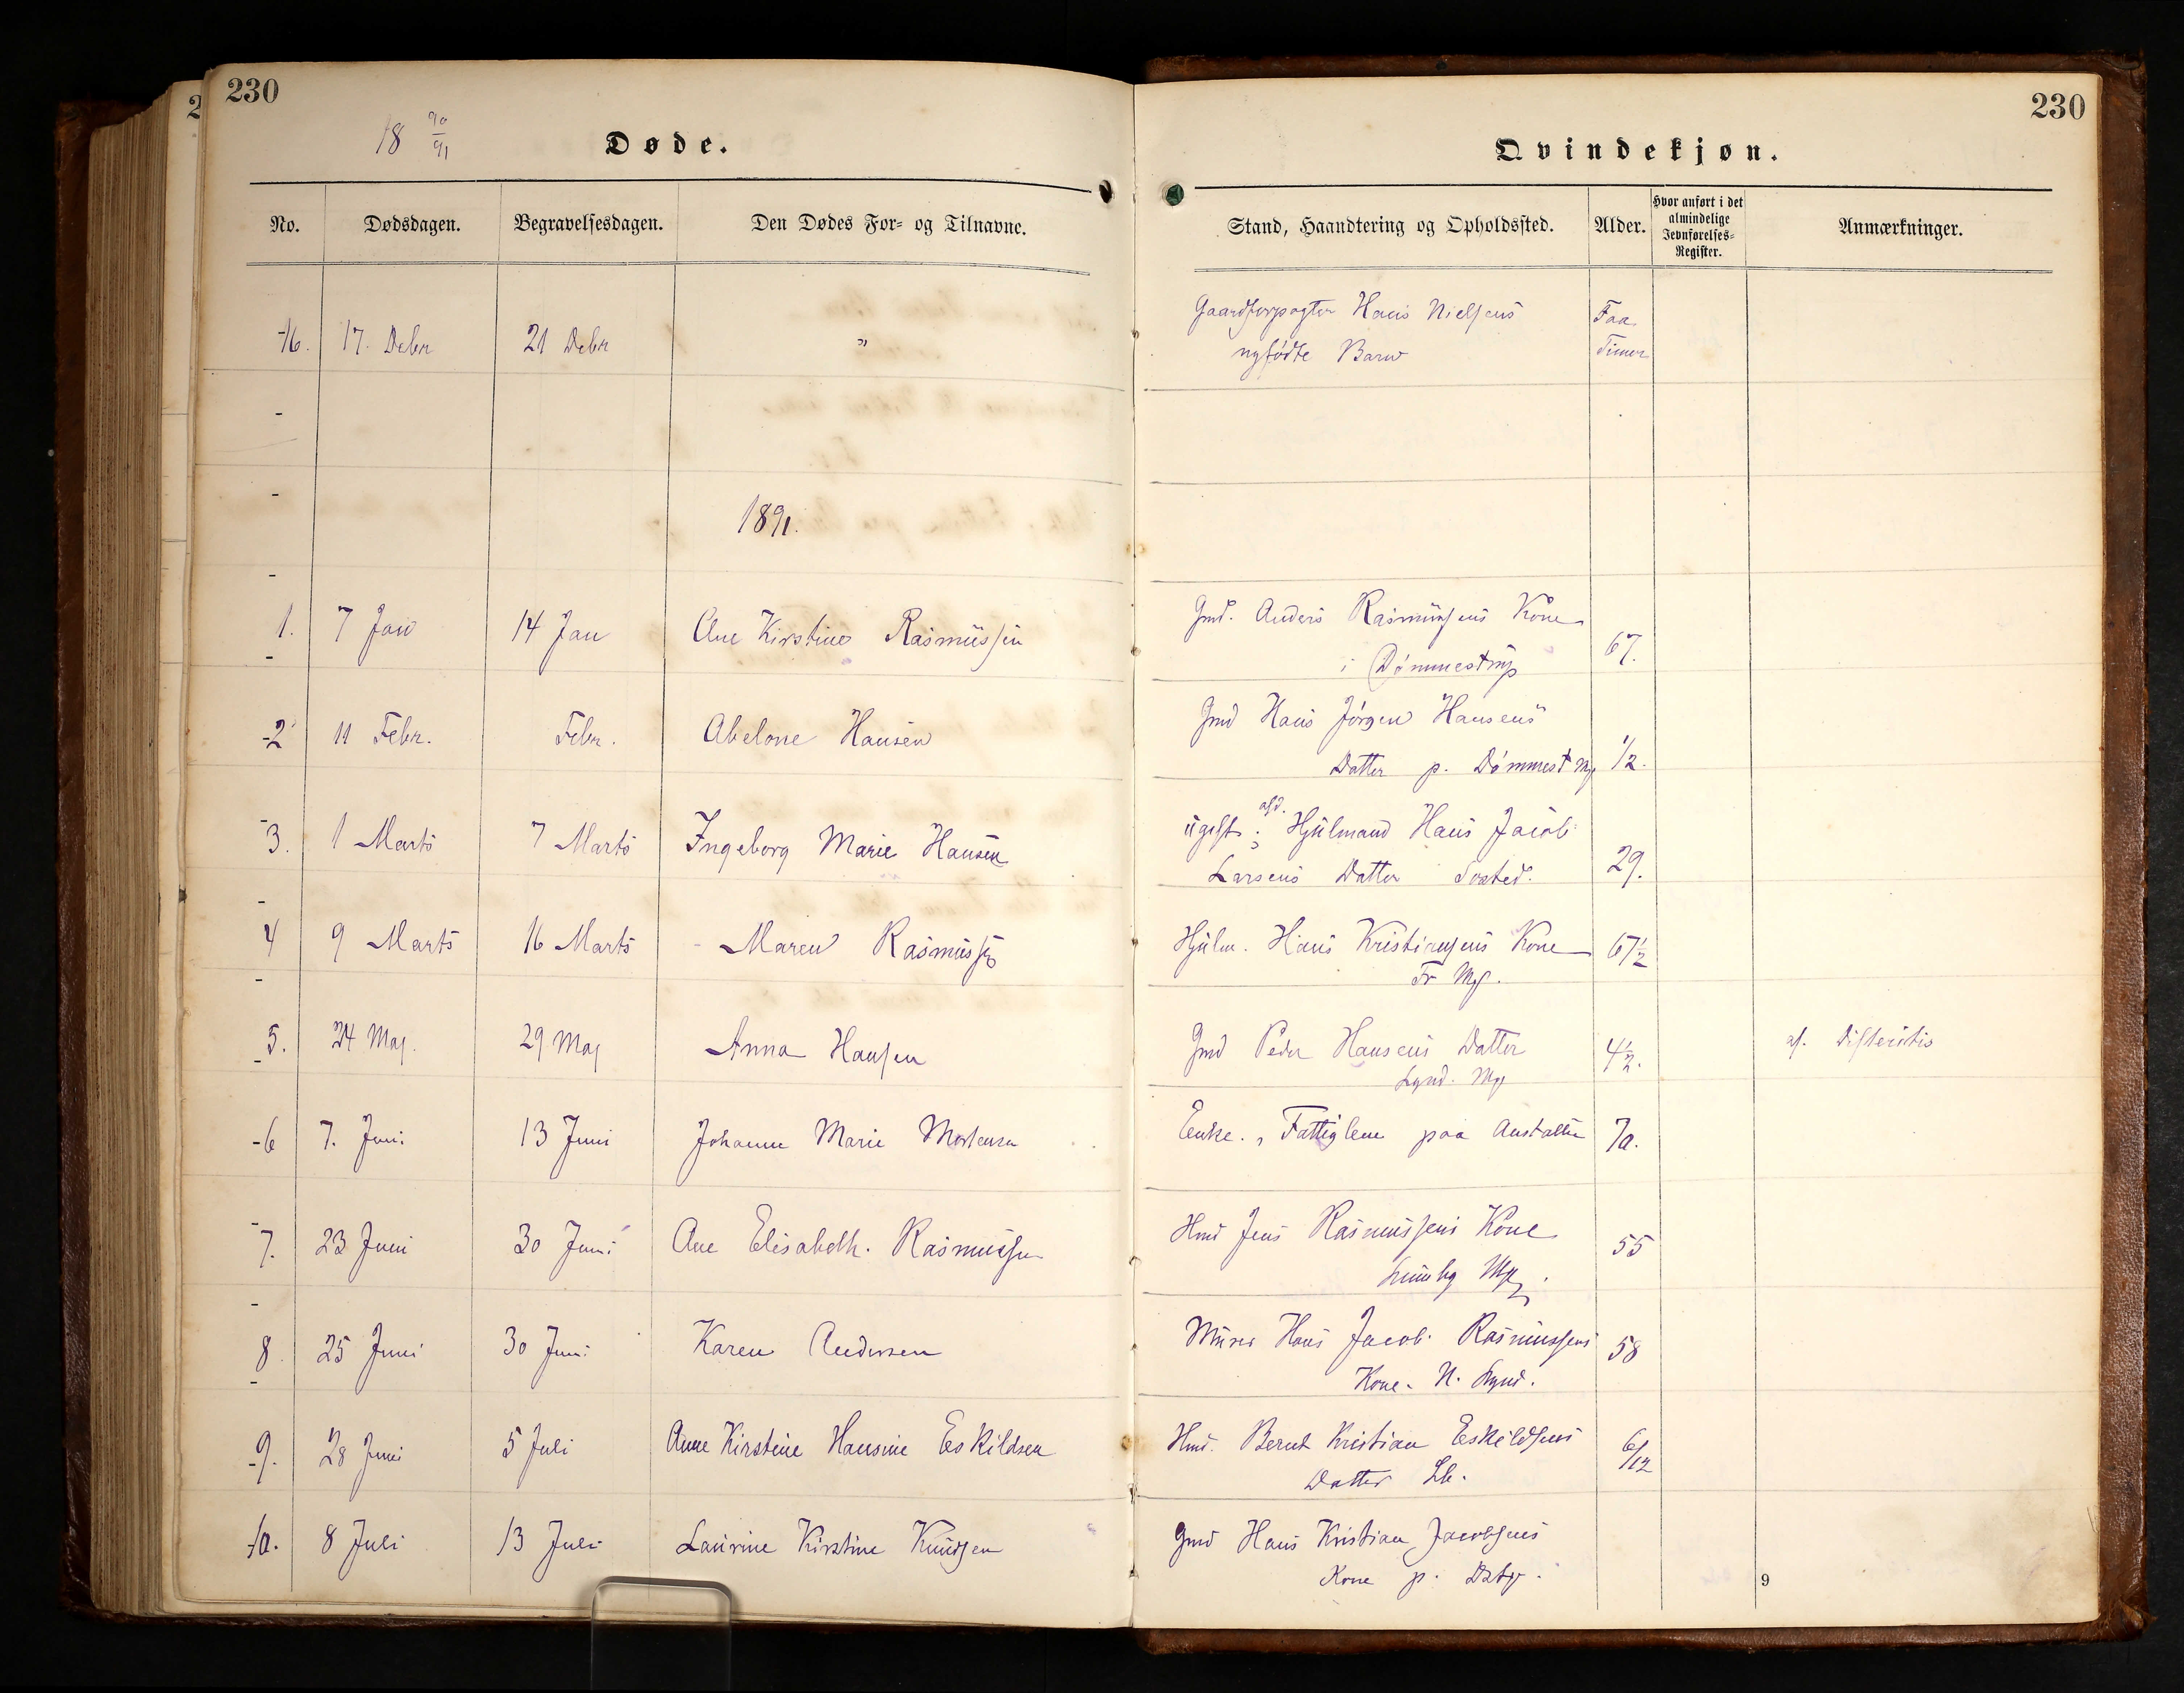 230
18 90/91
Døde.
No. Dødsdagen. Begravelsesdagen. Den Dødes For- og Tilnavne.
16. 17. Debr 21 Debr "
1891.
1. 7 Jan 14 Jan Ane Kirstine Rasmussen
2 11 Febr. Febr. Abelone Hansen
3. 1 Marts 7 Marts Ingeborg Marie Hansen
4 9 Marts 16 Marts Maren
5. 24 Maj. 29 Maj Anna Hansen
6 7. Juni 13 Juni Johanne Marie Mortensen
7. 23 Juni 30 Juni Ane Elisabeth. Rasmussen
8 25 Juni 30 Juni Karen Andersen
9. 28 Juni 5 Juli Anne Kirstine Hansine Eskildsen
10. 8 Juli 13 Juli Laurine Kirstine Knudsen
230
Qvindekjøn.
Stand, Haandtering og Opholdssted. Alder. Hvor anført i det almindelige Jevnførelses-Register. Anmærkninger.
Gaardforpagter Hans Nielsens Faa
nyfødte Barn Timer
Gmd. Anders Rasmussens Kone
i Dømmestrup 67.
Gmd Hans Jørgen Hansens
Datter p. Dømmest Mk 1/2.
ugift; afd. Hjulmand Hans Jacob
Larsens Datter 29.
Hjulm. Hans Kristiansens Kone 67 1/2
Gmd Peder Hansens Datter 4 1/2. af. Difteritis
Lynd. Mk
Enke., Fattiglem paa Anstalten 70.
Hmd Jens Rasmussens Kone
55
Murer Hans Jacob Rasmussens 58
Kone. N. Lynd.
Hmd. Bernt Kristian Eskildsens 6/12
Datter Lk.
Gmd Hans Kristian Jacobsens
Kone p.
9